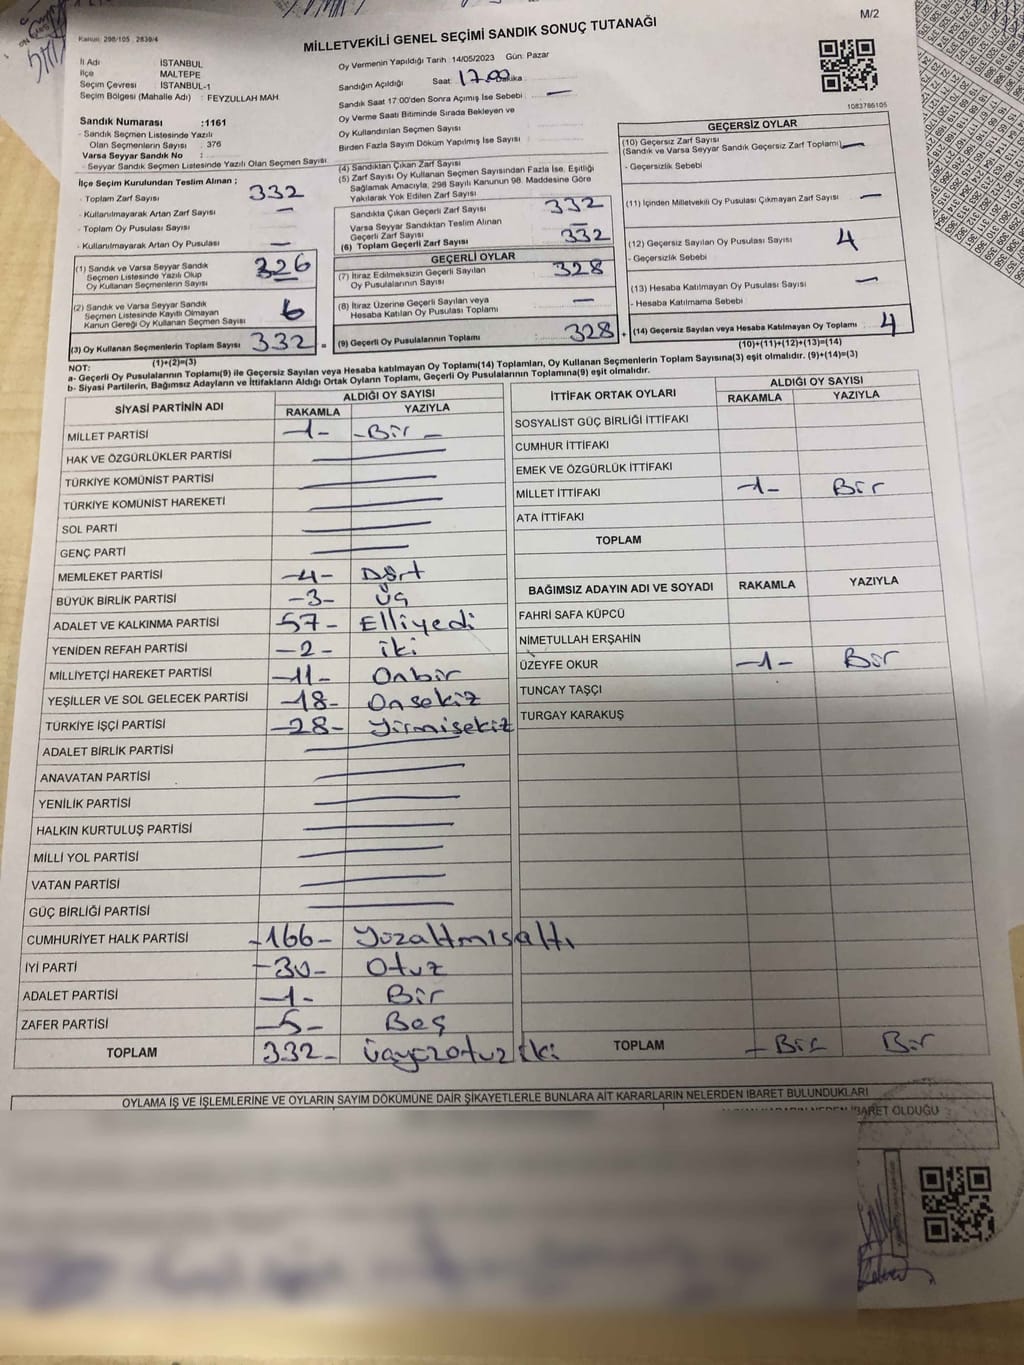 M/2
Kanun: 298/105 , 2839/4
MİLLETVEKİLİ GENEL SEÇİMİ SANDIK SONUÇ TUTANAĞI
İl Adı : İSTANBUL
İlçe : MALTEPE
Seçim Çevresi : İSTANBUL-1
Seçim Bölgesi (Mahalle Adı) : FEYZULLAH MAH.
Sandık Numarası :1161
- Sandık Seçmen Listesinde Yazılı
Olan Seçmenlerin Sayısı : 376
Varsa Seyyar Sandık No :
- Seyyar Sandık Seçmen Listesinde Yazılı Olan Seçmen Sayısı
Oy Vermenin Yapıldığı Tarih :14/05/2023 Gün: Pazar
Sandığın Açıldığı Saat: 17.00 Dakika :
Sandık Saat 17:00'den Sonra Açımış İse Sebebi : —
Oy Verme Saati Bitiminde Sırada Bekleyen ve
Oy Kullandırılan Seçmen Sayısı
Birden Fazla Sayım Döküm Yapılmış İse Sayısı
1083786105
İlçe Seçim Kurulundan Teslim Alınan ;
- Toplam Zarf Sayısı 332
- Kullanılmayarak Artan Zarf Sayısı —
- Toplam Oy Pusulası Sayısı
- Kullanılmayarak Artan Oy Pusulası —
(1) Sandık ve Varsa Seyyar Sandık
Seçmen Listesinde Yazılı Olup
Oy Kullanan Seçmenlerin Sayısı 326
(2) Sandık ve Varsa Seyyar Sandık
Seçmen Listesinde Kayıtlı Olmayan
Kanun Gereği Oy Kullanan Seçmen Sayısı 6
(3) Oy Kullanan Seçmenlerin Toplam Sayısı 332 =
(1)+(2)=(3)
(4) Sandıktan Çıkan Zarf Sayısı
(5) Zarf Sayısı Oy Kullanan Seçmen Sayısından Fazla İse, Eşitliği
Sağlamak Amacıyla, 298 Sayılı Kanunun 98. Maddesine Göre
Yakılarak Yok Edilen Zarf Sayısı
Sandıkta Çıkan Geçerli Zarf Sayısı 332
Varsa Seyyar Sandıktan Teslim Alınan
Geçerli Zarf Sayısı —
(6) Toplam Geçerli Zarf Sayısı 332
GEÇERLİ OYLAR
(7) İtiraz Edilmeksizin Geçerli Sayılan
Oy Pusulalarının Sayısı 328
(8) İtiraz Üzerine Geçerli Sayılan veya
Hesaba Katılan Oy Pusulası Toplamı —
(9) Geçerli Oy Pusulalarının Toplamı 328
GEÇERSİZ OYLAR
(10) Geçersiz Zarf Sayısı
(Sandık ve Varsa Seyyar Sandık Geçersiz Zarf Toplamı) —
- Geçersizlik Sebebi
(11) İçinden Milletvekili Oy Pusulası Çıkmayan Zarf Sayısı —
(12) Geçersiz Sayılan Oy Pusulası Sayısı 4
- Geçersizlik Sebebi
(13) Hesaba Katılmayan Oy Pusulası Sayısı —
- Hesaba Katılmama Sebebi
(14) Geçersiz Sayılan veya Hesaba Katılmayan Oy Toplamı 4
(10)+(11)+(12)+(13)=(14)
NOT:
a- Geçerli Oy Pusulalarının Toplamı(9) ile Geçersiz Sayılan veya Hesaba katılmayan Oy Toplamı(14) Toplamları, Oy Kullanan Seçmenlerin Toplam Sayısına(3) eşit olmalıdır. (9)+(14)=(3)
b- Siyasi Partilerin, Bağımsız Adayların ve İttifakların Aldığı Ortak Oyların Toplamı, Geçerli Oy Pusulalarının Toplamına(9) eşit olmalıdır.
SİYASİ PARTİNİN ADI
ALDIĞI OY SAYISI
RAKAMLA YAZIYLA
MİLLET PARTİSİ -1- -Bir-
HAK VE ÖZGÜRLÜKLER PARTİSİ
TÜRKİYE KOMÜNİST PARTİSİ
TÜRKİYE KOMÜNİST HAREKETİ
SOL PARTİ
GENÇ PARTİ
MEMLEKET PARTİSİ -4- Dört
BÜYÜK BİRLİK PARTİSİ -3- Üç
ADALET VE KALKINMA PARTİSİ 57- Elliyedi
YENİDEN REFAH PARTİSİ -2- iki
MİLLİYETÇİ HAREKET PARTİSİ -11- Onbir
YEŞİLLER VE SOL GELECEK PARTİSİ -18- Onsekiz
TÜRKİYE İŞÇİ PARTİSİ -28- Yirmisekiz
ADALET BİRLİK PARTİSİ
ANAVATAN PARTİSİ
YENİLİK PARTİSİ
HALKIN KURTULUŞ PARTİSİ
MİLLİ YOL PARTİSİ
VATAN PARTİSİ
GÜÇ BİRLİĞİ PARTİSİ
CUMHURİYET HALK PARTİSİ -166- Yüzaltmışaltı
İYİ PARTİ -30- Otuz
ADALET PARTİSİ -1- Bir
ZAFER PARTİSİ -5- Beş
TOPLAM 332- Üçyüzotuziki
İTTİFAK ORTAK OYLARI
ALDIĞI OY SAYISI
RAKAMLA YAZIYLA
SOSYALİST GÜÇ BİRLİĞİ İTTİFAKI
CUMHUR İTTİFAKI
EMEK VE ÖZGÜRLÜK İTTİFAKI
MİLLET İTTİFAKI -1- Bir
ATA İTTİFAKI
TOPLAM
BAĞIMSIZ ADAYIN ADI VE SOYADI RAKAMLA YAZIYLA
FAHRİ SAFA KÜPCÜ
NİMETULLAH ERŞAHİN
ÜZEYFE OKUR -1- Bir
TUNCAY TAŞÇI
TURGAY KARAKUŞ
TOPLAM - Bir Bir
OYLAMA İŞ VE İŞLEMLERİNE VE OYLARIN SAYIM DÖKÜMÜNE DAİR ŞİKAYETLERLE BUNLARA AİT KARARLARIN NELERDEN İBARET BULUNDUKLARI
İBARET OLDUĞU